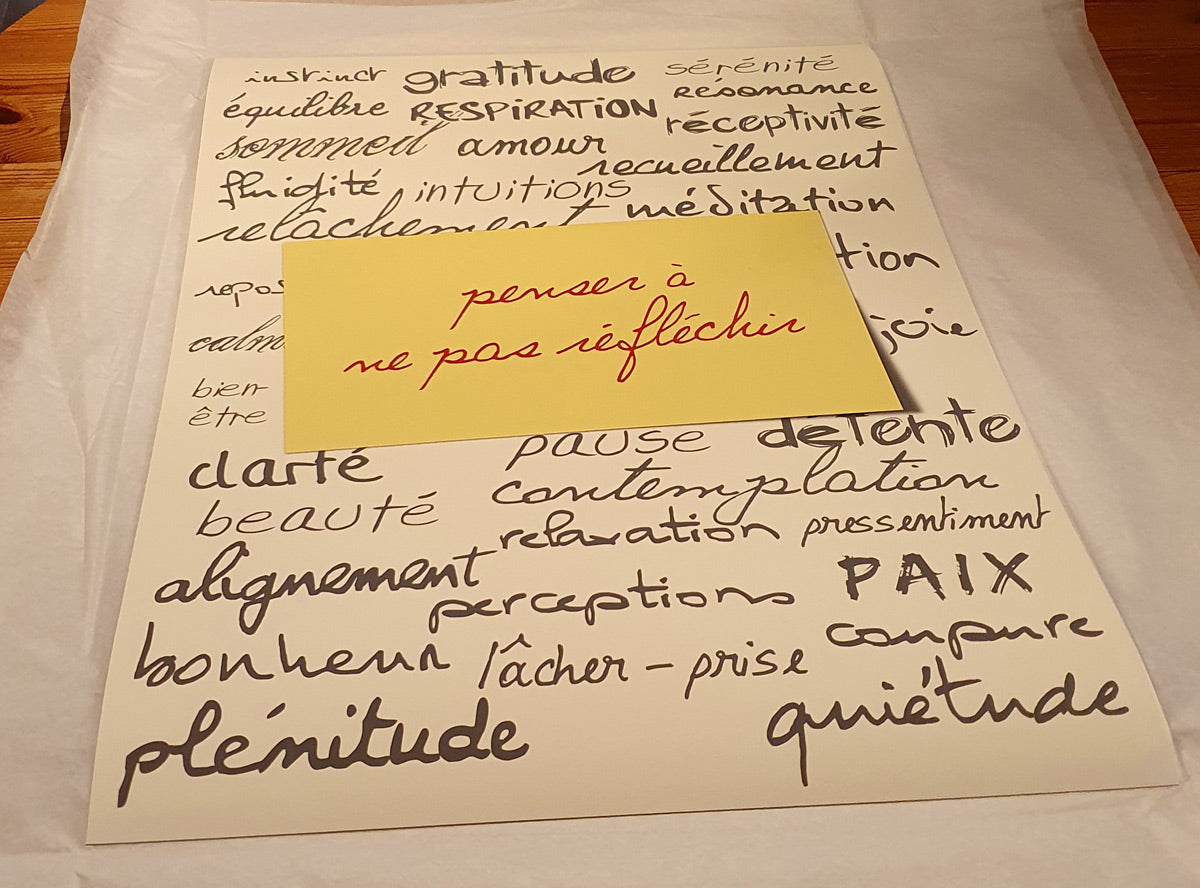 instinct gratitude sérénité
équilibre RESPIRATION résonance
sommeil amour réceptivité
recueillement
fluidité intuitions
relâchement méditation
tion
repos
penser à
ne pas réfléchir
calm
joie
bien-
être
pause détente
clarté
contemplation
beauté
relaxation pressentiment
alignement
perceptions PAIX
bonheur lâcher-prise coupure
plénitude quiétude